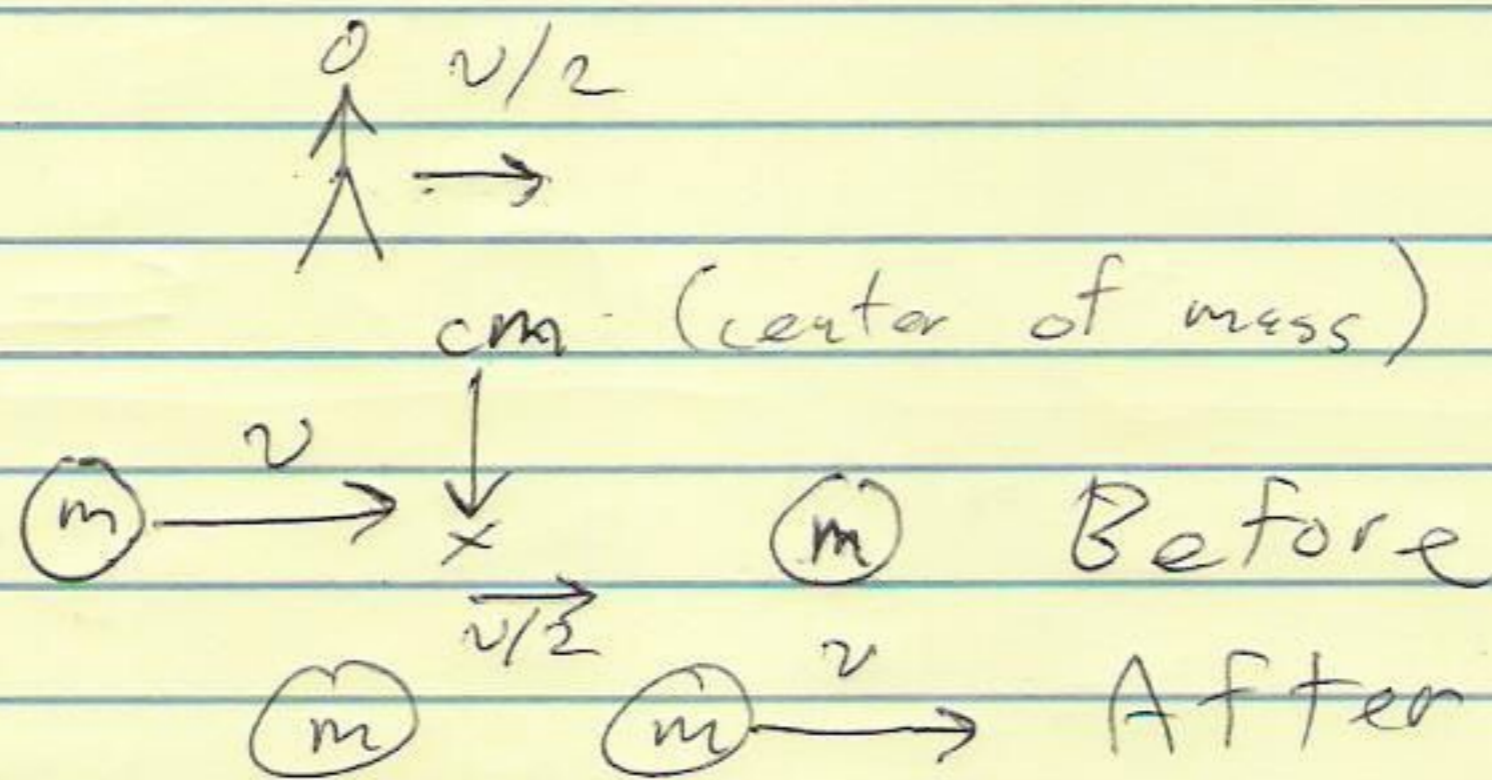 v/2
cm (center of mass)
v
m x m Before
v/2
v
m m After